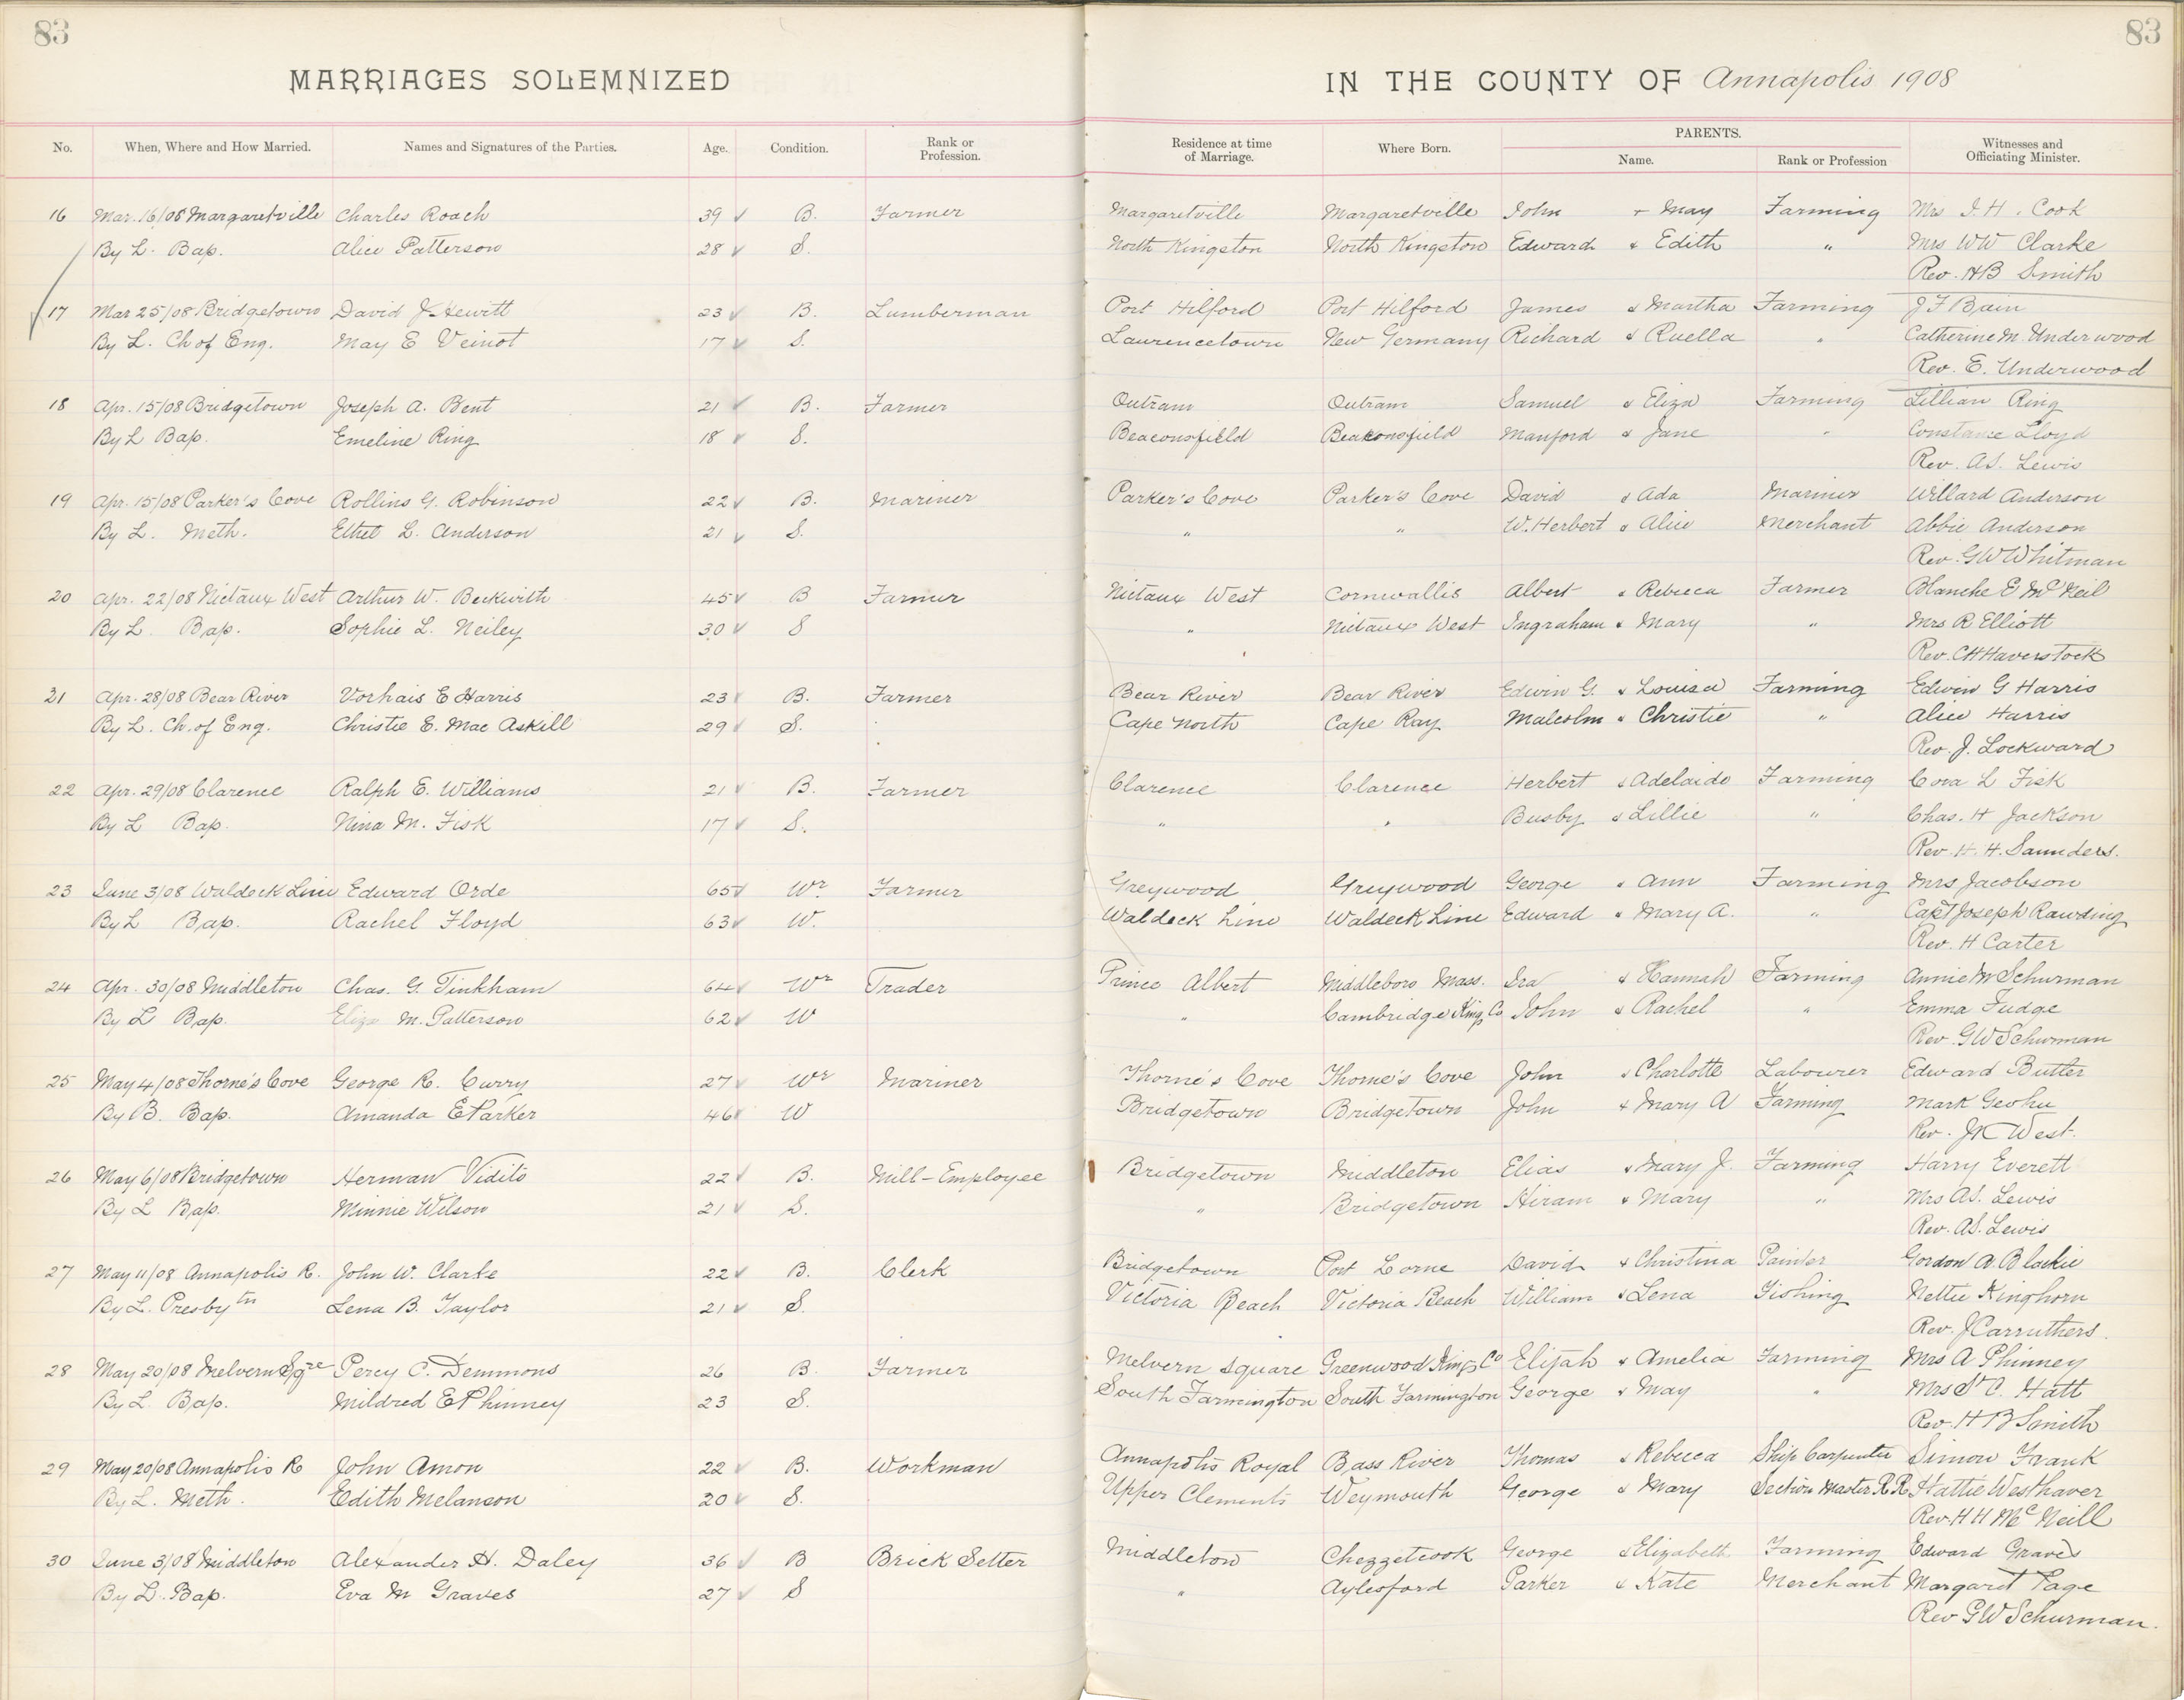 83
83
MARRIAGES SOLEMNIZED IN THE COUNTY OF Annapolis 1908
No. When, Where and How Married. Names and Signatures of the Parties. Age. Condition. Rank or Profession. Residence at time of Marriage. Where Born. PARENTS. Name. Rank or Profession Witnesses and Officiating Minister.
16 Mar. 16/08 Margaretville Charles Roach 39 B. Farmer Margaretville Margaretville John + May Farming Mrs I. H. Cook
By L. Bap. Alice Patterson 28 S. North Kingston North Kingston Edward & Edith " Mrs WW Clarke
Rev. HB Smith
17 Mar 25/08 Bridgetown David J Hewitt 23 B. Lumberman Port Hilford Port Hilford James & Martha Farming J F Bain
By L. Ch of Eng. May E Veinot 17 S. Laurencetown New Germany Richard & Ruella " Catherine M. Underwood
Rev. E. Underwood
18 Apr. 15/08 Bridgetown Joseph A. Bent 21 B. Farmer Outram Outram Samuel & Eliza Farming Lillian Ring
By L Bap. Emeline Ring 18 S. Beaconsfield Beaconsfield Manford & Jane " Constance Lloyd
Rev. A.S. Lewis
19 Apr. 15/08 Parker's Cove Rollins G. Robinson 22 B. Mariner Parker's Cove Parker's Cove David & Ada Mariner Willard Anderson
By L. Meth. Ethel L. Anderson 21 S. " " W. Herbert & Alice Merchant Abbie Anderson
Rev. G W Whitman
20 Apr. 22/08 Nictaux West Arthur W. Beckwith 45 B Farmer Nictaux West Cornwallis Albert & Rebecca Farmer Blanche E McNeil
By L. Bap. Sophie L. Neiley 30 S " Nictaux West Ingraham & Mary " Mrs R Elliott
Rev. C H Haverstock
21 Apr. 28/08 Bear River Vorhais E Harris 23 B. Farmer Bear River Bear River Edwin G. & Louisa Farming Edwin G Harris
By L. Ch. of Eng. Christie E. Mac Askill 29 S. Cape North Cape Ray Malcolm & Christie " Alice Harris
Rev. J. Lockward
22 Apr. 29/08 Clarence Ralph E. Williams 21 B. Farmer Clarence Clarence Herbert & Adelaide Farming Cora L Fisk
By L Bap. Nina M. Fisk 17 S. " " Busby & Lillie " Chas. H Jackson
Rev. H. H. Saunders.
23 June 3/08 Waldeck Line Edward Orde 65 Wr. Farmer Greywood Greywood George & Ann Farming Mrs Jacobson
By L Bap. Rachel Floyd 63 W. Waldeck Line Waldeck Line Edward & Mary A. " Capt Joseph Rawding
Rev. H Carter
24 Apr. 30/08 Middleton Chas. G. Tinkham 64 Wr Trader Prince Albert Middleboro Mass. Ira & Hannah Farming Annie M Schurman
By L Bap. Eliza M. Patterson 62 W " Cambridge Kings Co John & Rachel " Emma Fudge
Rev. G W Schurman
25 May 4/08 Thorne's Cove George R. Curry 27 Wr Mariner Thorne's Cove Thorne's Cove John & Charlotte Labourer Edward Butler
By B. Bap. Amanda E Parker 46 W Bridgetown Bridgetown John & Mary A Farming Mark
Rev. J K West.
26 May 6/08 Bridgetown Herman Vidito 22 B. Mill-Employee Bridgetown Middleton Elias & Mary J. Farming Harry Everett
By L Bap. Minnie Wilson 21 S. " Bridgetown Hiram & Mary " Mrs A.S. Lewis
Rev. A.S. Lewis
27 May 11/08 Annapolis R. John W. Clarke 22 B. Clerk Bridgetown Port Lorne David & Christina Painter Gordon A. Blackie
By L. Presbytn Lena B. Taylor 21 S. Victoria Beach Victoria Beach William & Lena Fishing Nettie Kinghorn
Rev. J Carruthers.
28 May 20/08 Melvern Sqre Percy C. Demmons 26 B. Farmer Melvern Square Greenwood Kings Co Elijah & Amelia Farming Mrs A Phinney
By L. Bap. Mildred E Phinney 23 S. South Farmington South Farmington George & May " Mrs St C. Hatt
Rev. H B Smith
29 May 20/08 Annapolis R John Amon 22 B. Workman Annapolis Royal Bass River Thomas & Rebecca Ship Carpenter Simon Frank
By L. Meth. Edith Melanson 20 S. Upper Clements Weymouth George & Mary Section Master R R Hattie Westhaver
Rev. H H McNeill
30 June 3/08 Middleton Alexander H. Daley 36 B Brick Setter Middleton Chezzetcook George & Elizabeth Farming Edward Graves
By L. Bap. Eva M Graves 27 S " Aylesford Parker & Kate Merchant Margaret Page
Rev G W Schurman.